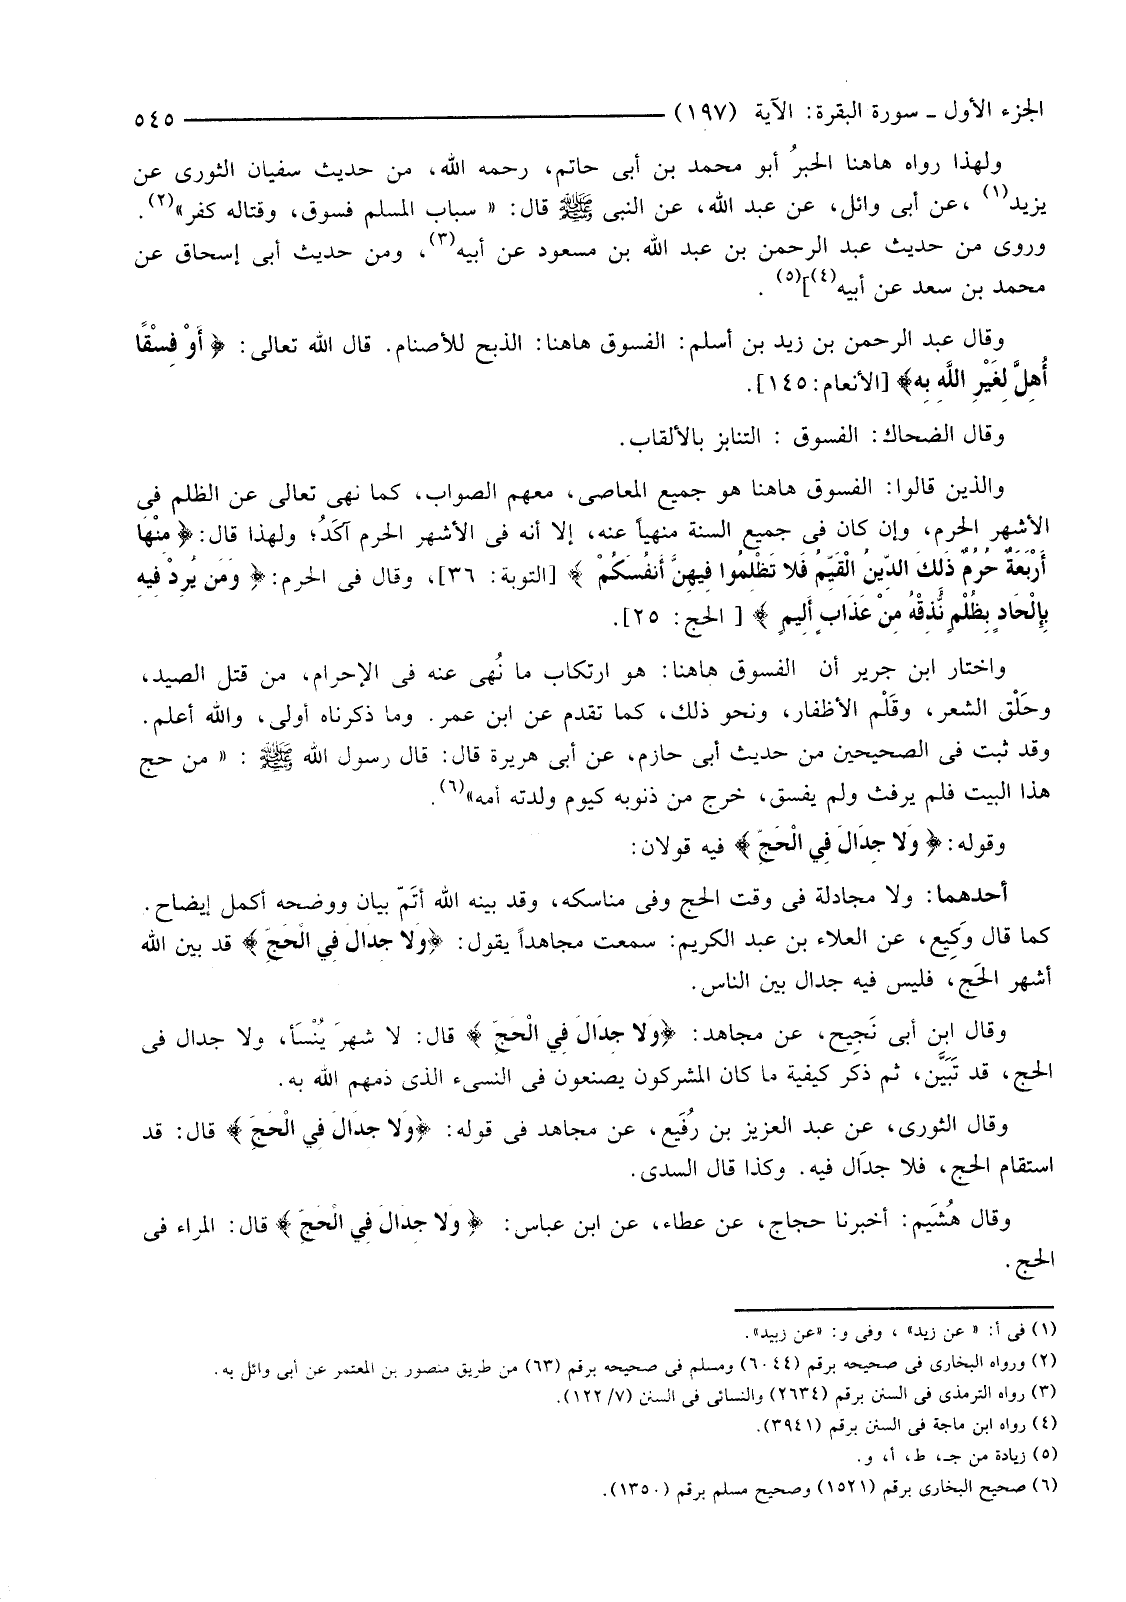 الجزء الأول ـ سورة البقرة: الآية (١٩٧) ٥٤٥
ولهذا رواه هاهنا الحبرُ أبو محمد بن أبى حاتم، رحمه الله، من حديث سفيان الثورى عن
يزيد(١) ،عن أبى وائل، عن عبد الله، عن النبى ﷺ قال: « سباب المسلم فسوق، وقتاله كفر»(٢).
وروى من حديث عبد الرحمن بن عبد الله بن مسعود عن أبيه(٣)، ومن حديث أبى إسحاق عن
محمد بن سعد عن أبيه(٤)](٥) .
وقال عبد الرحمن بن زيد بن أسلم: الفسوق هاهنا: الذبح للأصنام. قال الله تعالى: ﴿ أَوْ فِسْقًا
أُهِلَّ لِغَيْرِ اللَّهِ بِه﴾ [الأنعام:١٤٥].
وقال الضحاك: الفسوق : التنابز بالألقاب.
والذين قالوا: الفسوق هاهنا هو جميع المعاصى، معهم الصواب، كما نهى تعالى عن الظلم فى
الأشهر الحرم، وإن كان فى جميع السنة منهياً عنه، إلا أنه فى الأشهر الحرم آكَدُ؛ ولهذا قال:﴿ مِنْهَا
أَرْبَعَةٌ حُرُمٌ ذَلِكَ الدِّينُ الْقَيِّمُ فَلا تَظْلِمُوا فِيهِنَّ أَنفُسَكُمْ ﴾ [التوبة: ٣٦]، وقال فى الحرم:﴿ وَمَن يُرِدْ فِيهِ
بِإِلْحَادٍ بِظُلْمٍ نُّذِقْهُ مِنْ عَذَابٍ أَلِيمٍ ﴾ [ الحج: ٢٥].
واختار ابن جرير أن الفسوق هاهنا: هو ارتكاب ما نُهى عنه فى الإحرام، من قتل الصيد،
وحَلْق الشعر، وقَلْم الأظفار، ونحو ذلك، كما تقدم عن ابن عمر. وما ذكرناه أولى، والله أعلم.
وقد ثبت فى الصحيحين من حديث أبى حازم، عن أبى هريرة قال: قال رسول الله ﷺ : « من حج
هذا البيت فلم يرفث ولم يفسق، خرج من ذنوبه كيوم ولدته أمه»(٦).
وقوله:﴿ وَلا جِدَالَ فِي الْحَجّ ﴾ فيه قولان:
أحدهما: ولا مجادلة فى وقت الحج وفى مناسكه، وقد بينه الله أتَمّ بيان ووضحه أكمل إيضاح.
كما قال وكَيِع، عن العلاء بن عبد الكريم: سمعت مجاهداً يقول: ﴿وَلا جِدَالَ فِي الْحَجِّ ﴾ قد بين الله
أشهر الحَج، فليس فيه جدال بين الناس.
وقال ابن أبى نَجِيح، عن مجاهد: ﴿وَلا جِدَالَ فِي الْحَجِّ ﴾ قال: لا شهرَ يُنْسَأ، ولا جدال فى
الحج، قد تَبَيَّن، ثم ذكر كيفية ما كان المشركون يصنعون فى النسىء الذى ذمهم الله به.
وقال الثورى، عن عبد العزيز بن رُفَيع، عن مجاهد فى قوله: ﴿وَلا جِدَالَ فِي الْحَجِّ ﴾ قال: قد
استقام الحج، فلا جدَال فيه. وكذا قال السدى.
وقال هُشَيم: أخبرنا حجاج، عن عطاء، عن ابن عباس: ﴿ وَلا جِدَالَ فِي الْحَجِّ ﴾ قال: المراء فى
الحج.
(١) فى أ: « عن زيد» ، وفى و: «عن زبيد».
(٢) ورواه البخارى فى صحيحه برقم (٦٠٤٤) ومسلم فى صحيحه برقم (٦٣) من طريق منصور بن المعتمر عن أبى وائل به.
(٣) رواه الترمذى فى السنن برقم (٢٦٣٤) والنسائى فى السنن (٧/ ١٢٢).
(٤) رواه ابن ماجة فى السنن برقم (٣٩٤١).
(٥) زيادة من جـ، ط، أ، و.
(٦) صحيح البخارى برقم (١٥٢١) وصحيح مسلم برقم (١٣٥٠).